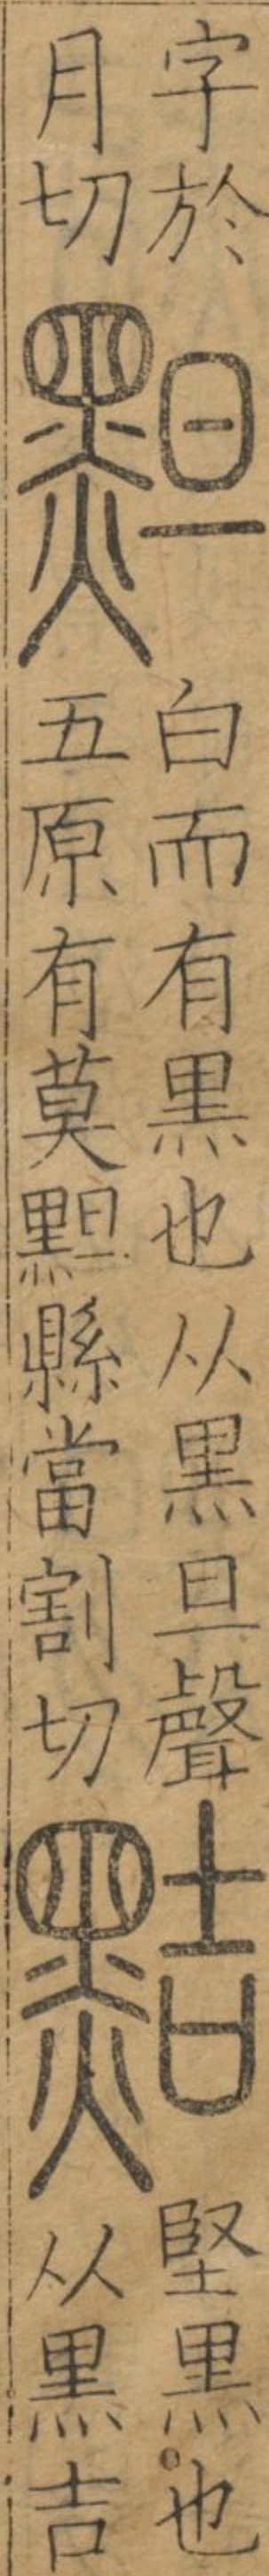 字於
月切
䵣
白而有黒也从黒旦聲
五原有莫䵣縣當割切
黠
堅黒也
从黒吉